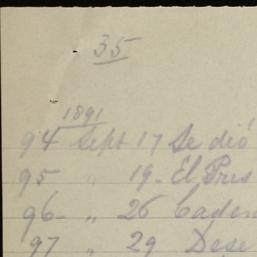 35
1891
94 Sept 17 Se dió
95 " 19- El Pres
96- " 26 Caden
97 " 29 Dese